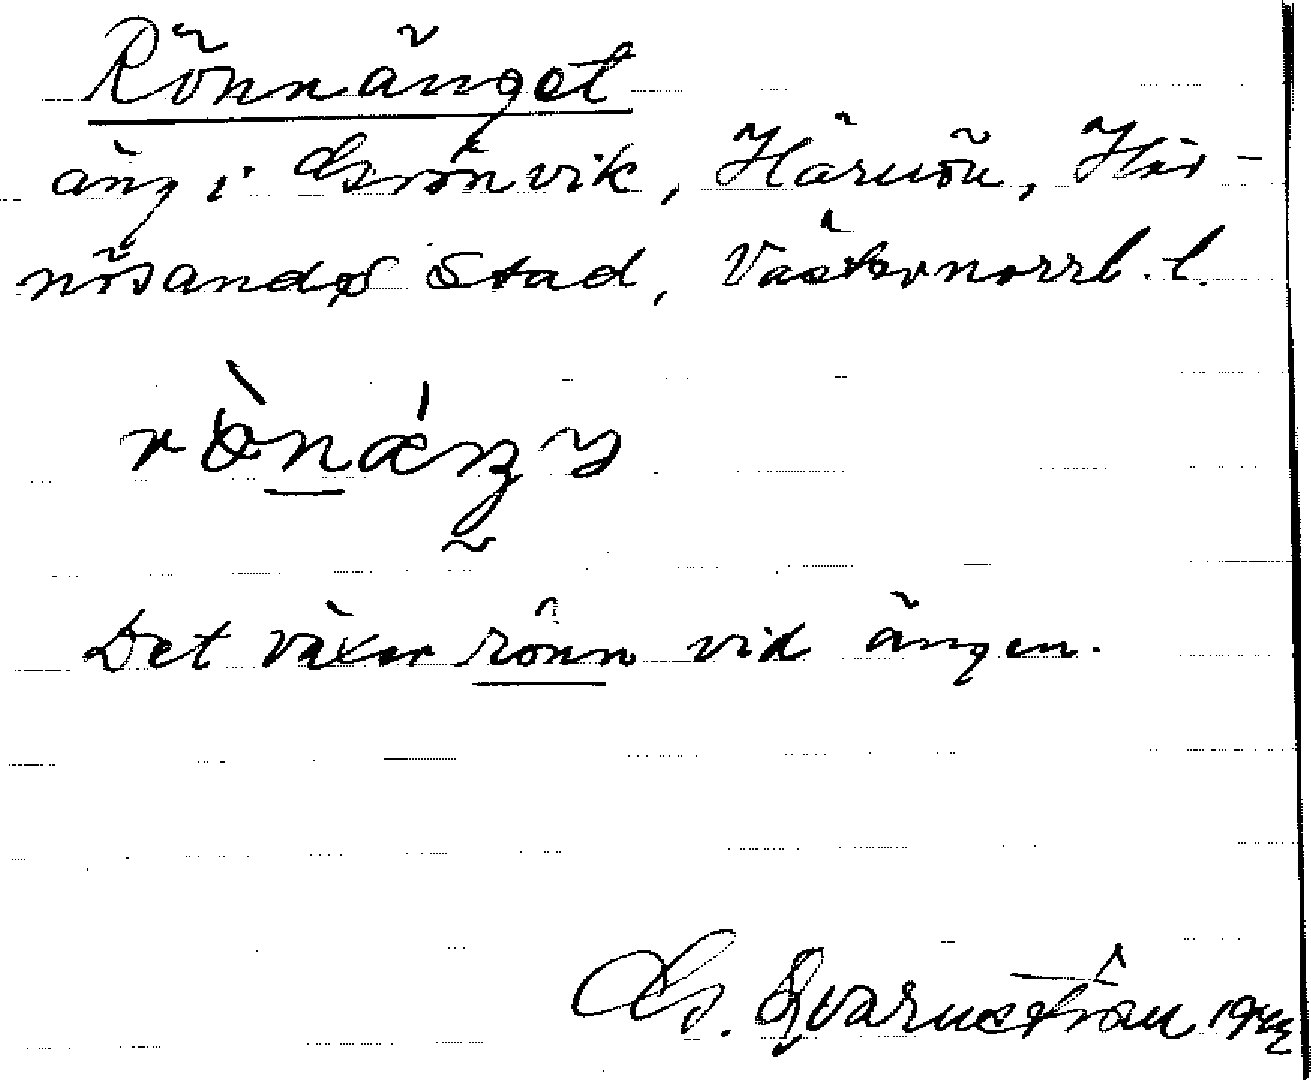 Rönnänget
äng i Grönvik, Härnön, Här-
nösands stad, Västernorrl. l.
Det växer rönn vid ängen.
G. Qvarnström